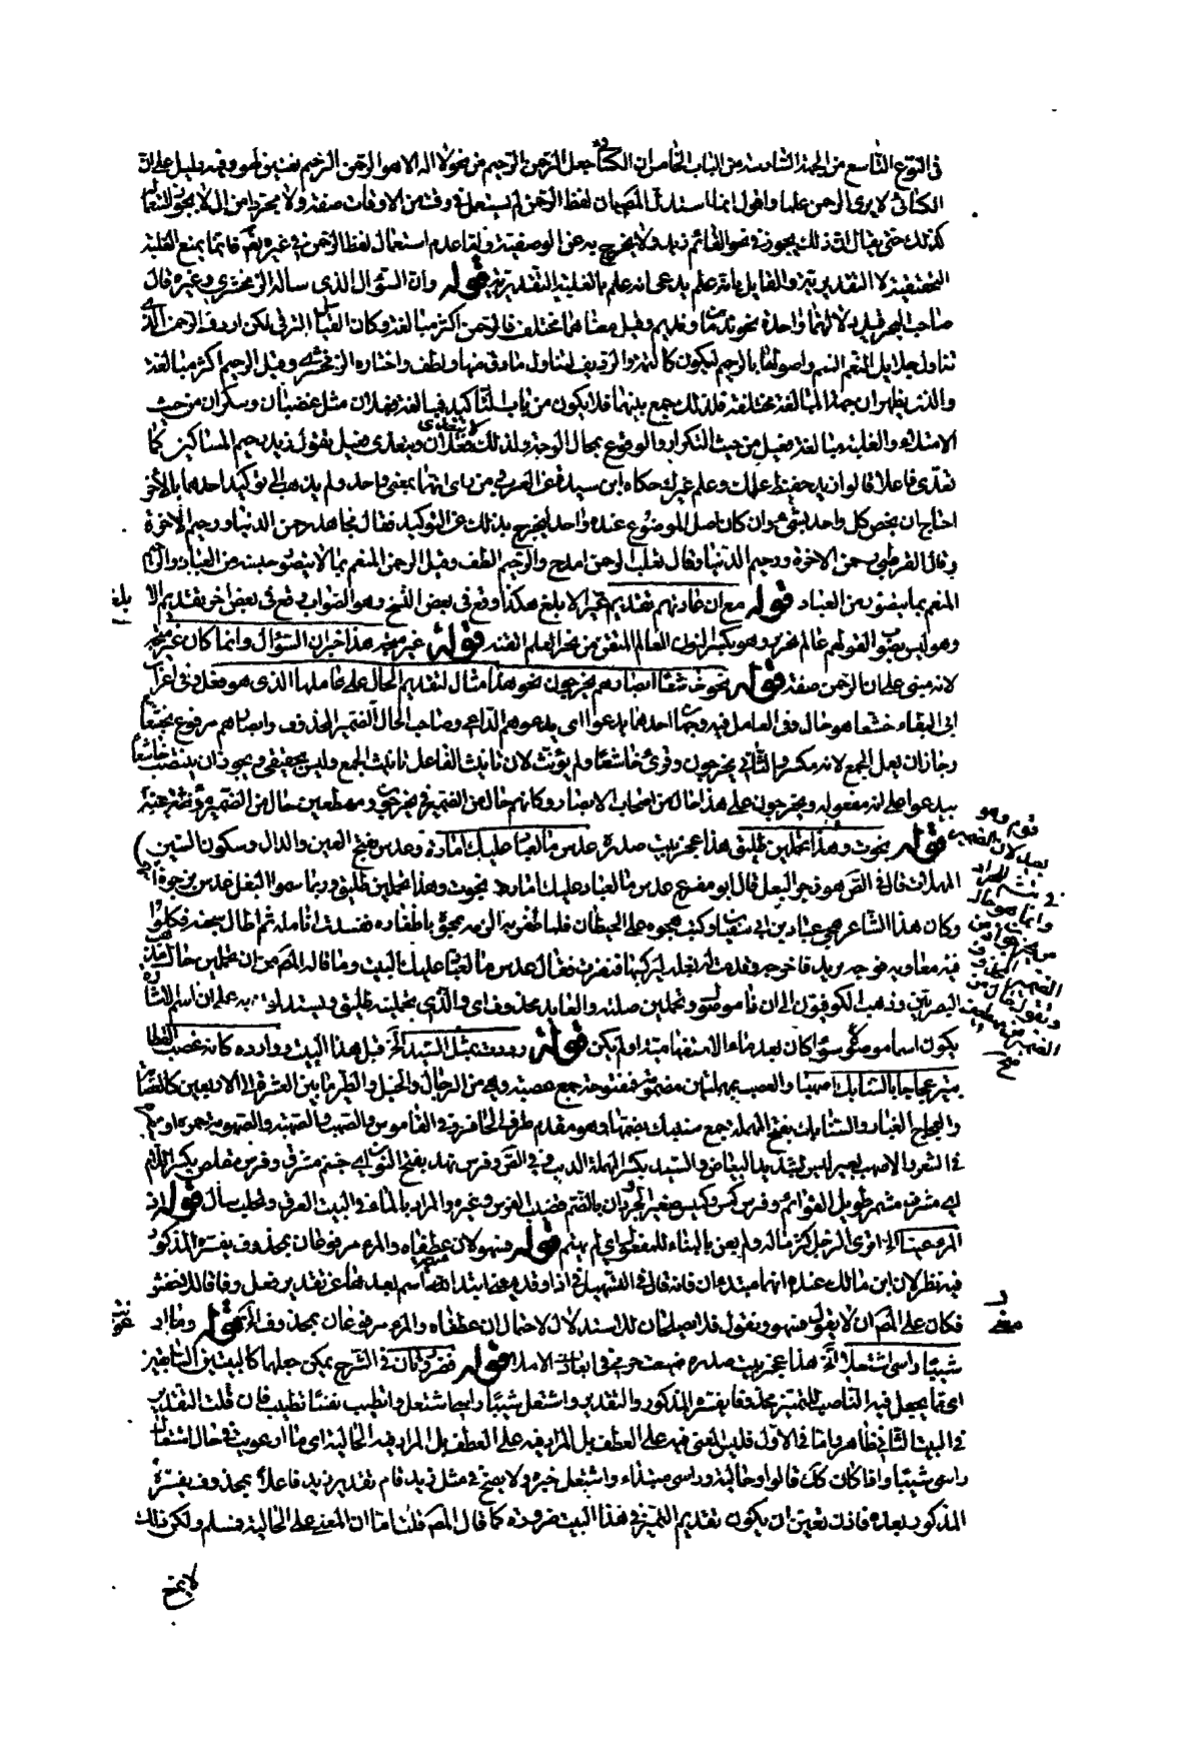 في النوع التاسع من الجهة السادسة من الباب الخامس ان الكتاب جعل الرحمن الرحيم من نحو لا اله الا هو الرحمن الرحيم نعتين لهو وفيه دليل على ان
الكسائي لا يرى الرحمن علما واقول انما استدل المص بان لفظ الرحمن لم يستعمل في وقت من الاوقات صفة ولا مجردا من ال
كذلك حتى يقال ان ذلك يجوز في نحو القائم زيد ولا يخرج به عن الوصفية وقاعدم استعمال لفظ الرحمن في غيره تعالى فانما يمنع الغلبة
التحقيقية لا التقديرية والقايل بانه علم يدعي انه علم بالغلبة التقديرية قوله وان السؤال الذي سأله الزمخشري وغيره قال
صاحب البحر قيل دلالتهما واحدة نحو ندمان ونديم وقيل معناهما مختلف فالرحمن اكثر مبالغة وكان القياس الترقي لكن اردف الرحمن الذي
تناول جلايل النعم واصولها بالرحيم ليكون كالتتمة والرديف ليتناول ما دق منها ولطف واختاره الزمخشري وقيل الرحيم اكثر مبالغة
والذي يظهر ان جهة المبالغة مختلفة فلذلك جمع بينهما فلا يكون من باب التأكيد فمبالغة فعلان مثل غضبان وسكران من حيث
الامتلاء والغلبة ومبالغة فعيل من حيث التكرار والوقوع بمحال الرحمة ولذلك لا يتعدى فعلان ويتعدى فعيل تقول زيد رحيم المساكين كما
تعدى فاعلا قالوا زيد حفيظ علمك وعلم غيرك حكاه ابن سيده عن العرب ومن راى انهما بمعنى واحد ولم يذهب الى توكيد احدهما بالآخر
احتاج ان يخص كل واحد بشيء وان كان اصل الموضوع عنده واحدا ليخرج بذلك عن التوكيد فقال مجاهد رحمن الدنيا ورحيم الآخرة
وقال القرطبي رحمن الآخرة ورحيم الدنيا وقال ثعلب الرحمن امدح والرحيم الطف وقيل الرحمن المنعم بما لا يتصور جنسه من العباد والرحيم
المنعم بما يتصور من العباد قوله مع ان عادتهم تقديم غير الابلغ هكذا وقع في بعض النسخ وهو الصواب ووقع في بعض آخر تقديم الا بلغ
وهو ليس بصواب لقولهم عالم نحرير وهو بكسر النون العالم المتقن من نحر العلم اتقنه قوله غير متجه هذا خبر ان السؤال وانما كان غير متجه
لانه مبني على ان الرحمن صفة قوله نحو خشعا ابصارهم يخرجون نحو هذا مثال لتقديم الحال على عاملها الذي هو فعل وفي اعراب
ابي البقاء خشعا هو حال وفي العامل فيه وجهان احدهما يدعوا اي يدعوهم الداعي وصاحب الحال الضمير المحذوف وابصارهم مرفوع بخشعا
وجاز ان يعمل الجمع لانه مكسر والثاني يخرجون وقرئ خاشعا ولم يؤنث لان تانيث الفاعل تانيث الجمع وليس بحقيقي ويجوز ان ينتصب خاشعا
بيدعوا على انه مفعوله ويخرجون على هذا حال من اصحاب الابصار وكانهم حال من الضمير في يخرجون ومهطعين حال من الضمير في منتشر عنده
قوله نجوت وهذا تحملين طليق هذا عجز بيت صدره عدس ما لعباد عليك امارة وعدس بفتح العين والدال وسكون السين
المهملات قال في القس هو زجر البغل قال ابو مفرغ عدس ما لعباد عليك امارة نجوت وهذا تحملين طليق وربما سموا البغل عدس بزجره
وكان هذا الشاعر هجى عباد بن ابي سفيان وكتب هجوه على الحيطان فلما ظفر به الزمه محوه باظفاره ففسدت انامله ثم اطال سجنه فكلموا
فيه معاويه فوجه بريدا فاخرجه وقدمت له بغلة ليركبها فنفرت فقال عدس ما لعباد عليك البيت وما قاله المص من ان تحملين حال مذهب
البصريين وذهب الكوفيون الى ان ذا موصول وتحملين صلته والعايد محذوف اي والذي تحملينه طليق ويستدلون به على ان اسم الاشارة
يكون اسما موصولا سواء كان بعد ما الاستفهامية او لم يكن قوله رددت بمثل السيد الخ قبل هذا البيت وواردة كانها عصب القطا
تثير عجاجا بالسنابك اصهبا والعصب بمهملتين مضمومة فمفتوحة جمع عصبة وهي من الرجال والخيل والطير ما بين العشرة الى الاربعين كالعصابة
والعجاج الغبار والسنابك بفتح المهملة جمع سنبك بضمها وهو مقدم طرف الحافر وفي القاموس والصهب والصهبة والصهوبة حمرة او شقرة
في الشعر والاصهب بعير ليس بشديد البياض والسيد بكسر المهملة الذيب وفي القس وفرس نهد بفتح النون اي جسم مشرف وفرس مقلص بكسر اللام
اي مشرف مشمر طويل القوائم وفرس كميش صغير الجردان بالضم قضيب الفرس وغيره والمراد بالماء في البيت العرق وتحلب سال قوله اذا
المرء عينا الخ اثرى الرجل كثر ماله ولم يعن بالبناء للمفعول اي لم يهتم قوله فسهو لان عطفاه والمرء مرفوعان بمحذوف يفسره المذكور
فيه نظر لان ابن مالك عنده انهما مبتدءان فانه قال في التسهيل في اذا وقد يغني ابتداء اسم بعدها عن تقدير فعل وفاقا للاخفش
فكان على المص ان لا يقول فسهو ويقول فلا يصلحان للاستدلال لاحتمال ان عطفاه والمرء مرفوعان بمحذوف الخ قوله وما ار
شيبا راسي اشتعلا الخ هذا عجز بيت صدره ضيعت حزمي في ابعادي الاملا قوله فضرورتان في الشرح يمكن جعلهما كالبيتين السابقين
اي مما يجعل فيه الناصب للتمييز محذوفا يفسره المذكور والتقدير واشتعل شيبا راسي اشتعل واتطيب نفسا تطيب فان قلت التقدير
في البيت الثاني ظاهر واما في الاول فليس المعنى فيه على العطف بل المراد فيه الحالية اي ما ارعويت في حال اشتعال
راسي شيبا واذا كان كك قالوا وحالية وراسي مبتداء واشتعل خبره ولا يصح في مثل زيد قام تقدير زيد فاعلا بمحذوف يفسره
المذكور بعده فاذن تعين ان يكون تقديم التمييز في هذا البيت ضرورة كما قال المص قلت اما ان المعنى على الحالية فمسلم ولكن ذلك
لا يمنع